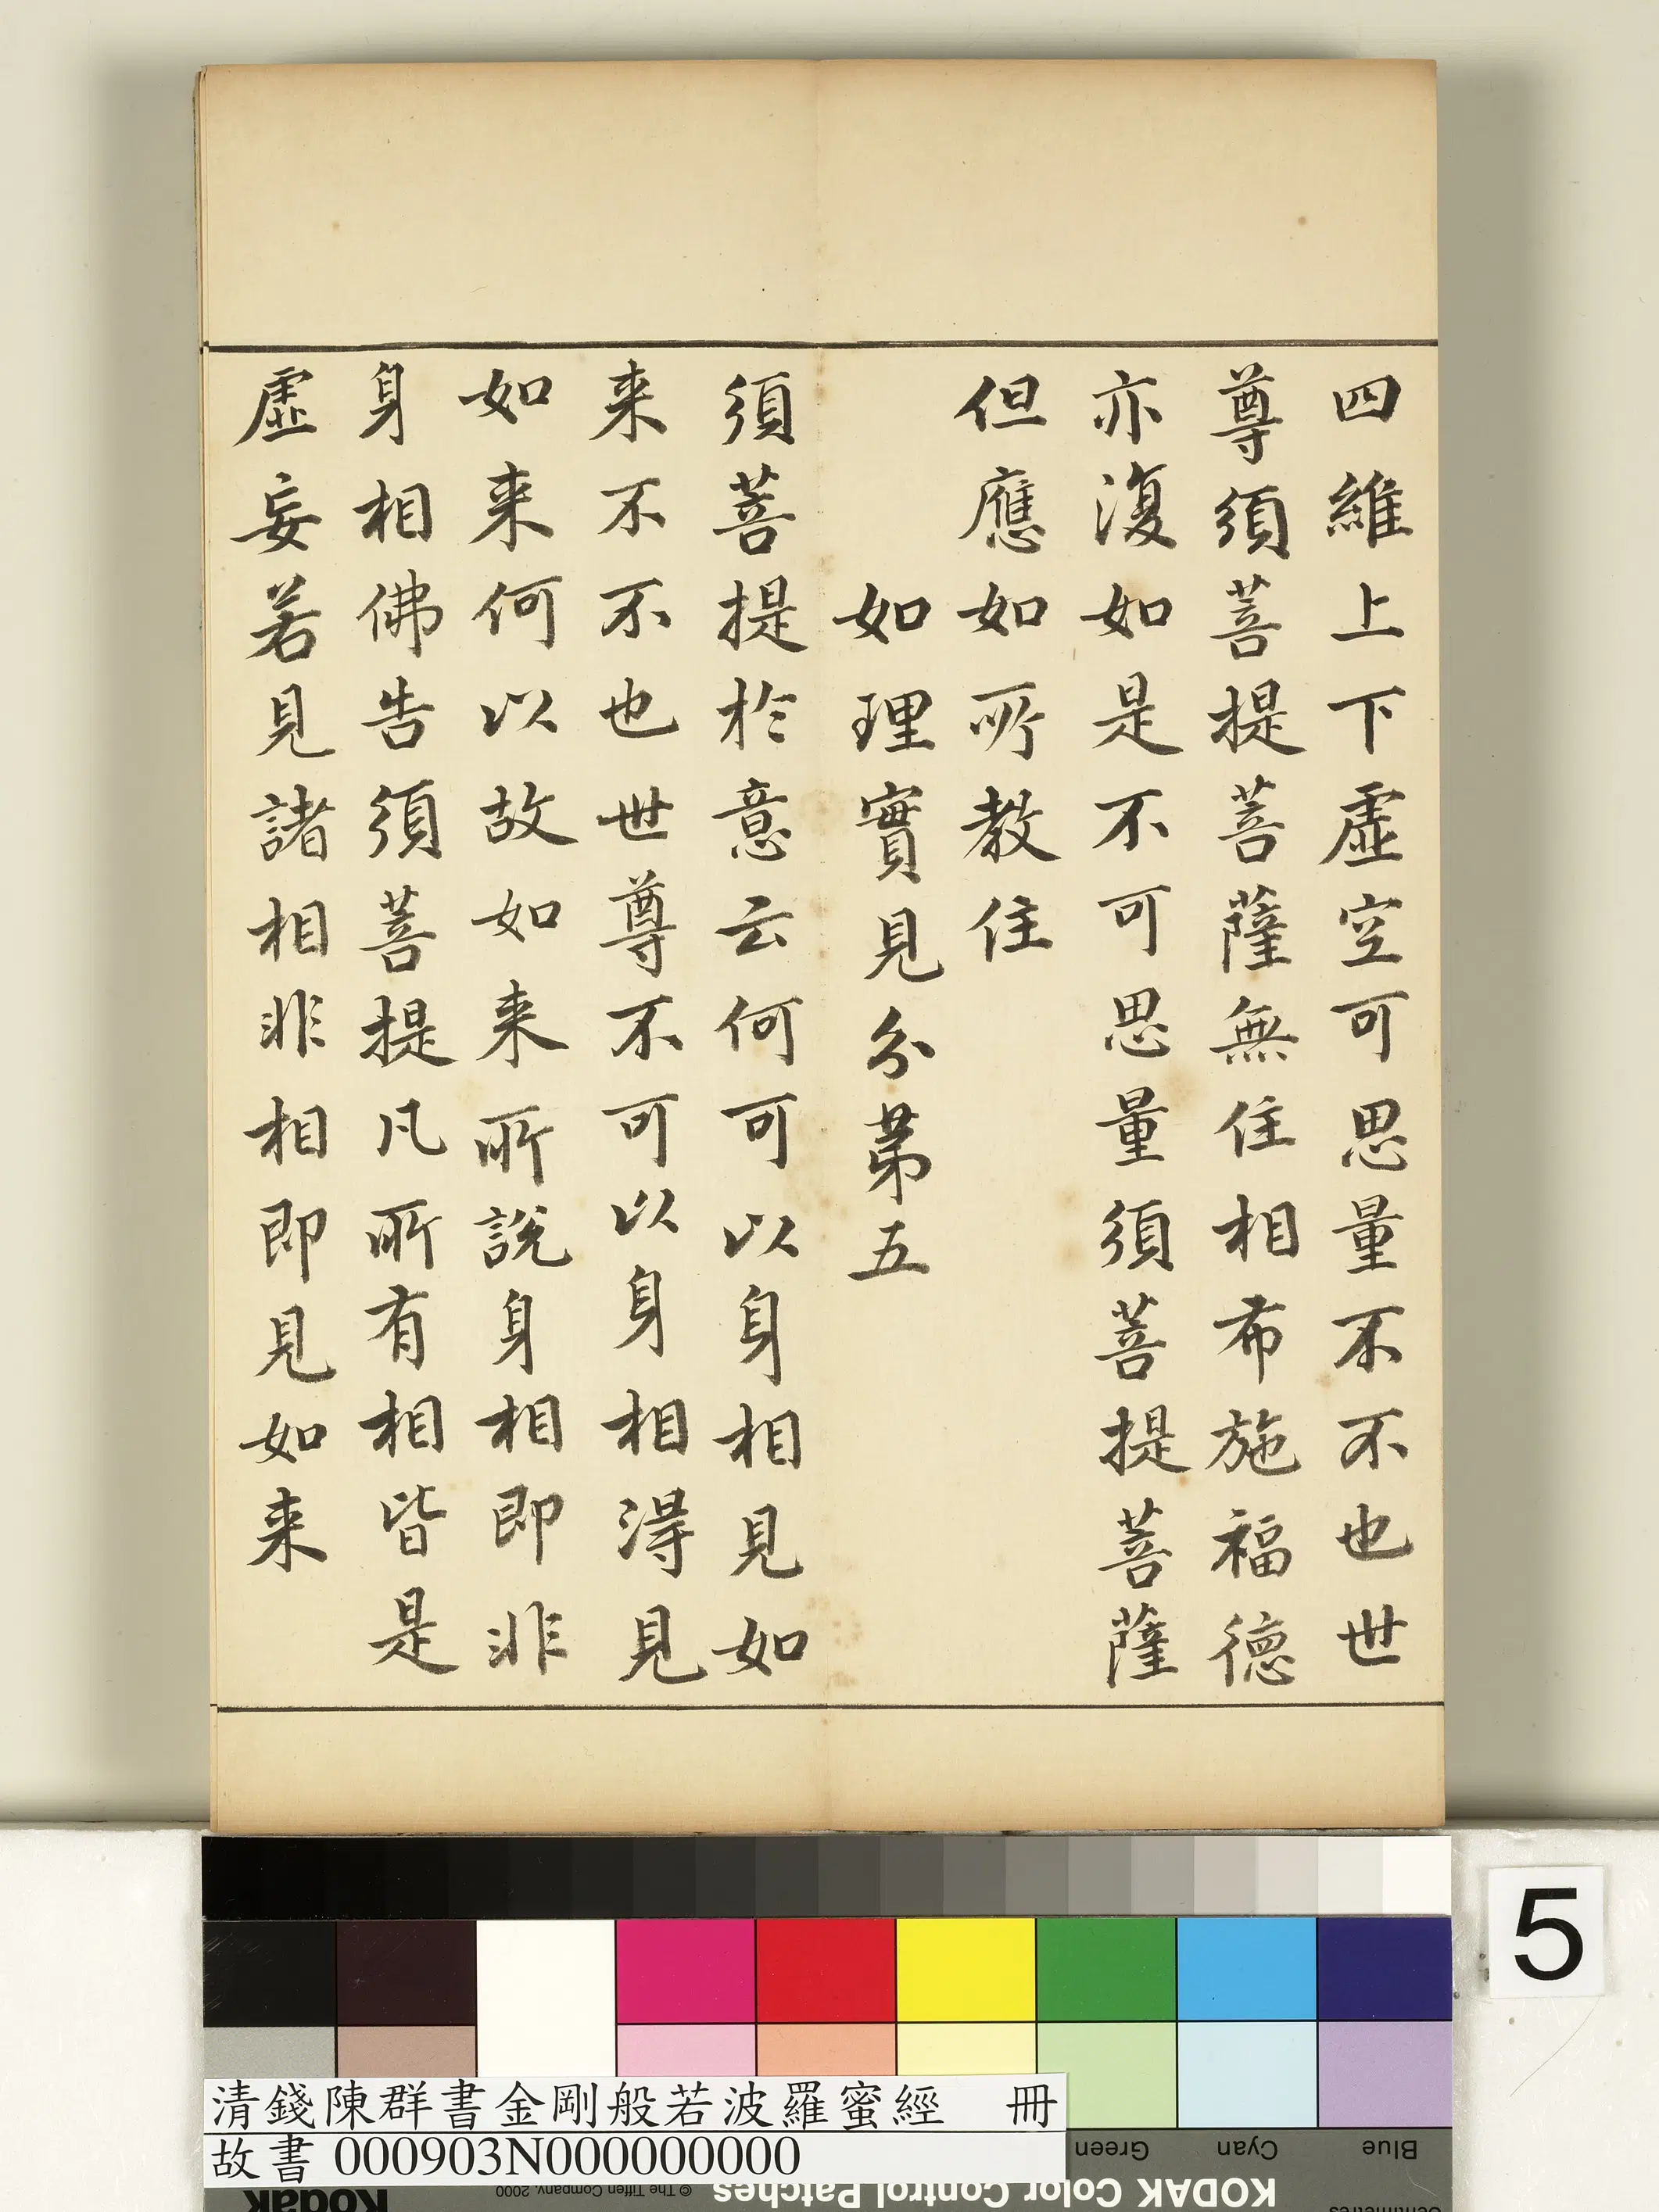 四維上下虛空可思量不不也世
尊須菩提菩薩無住相布施福德
亦復如是不可思量須菩提菩薩
但應如所教住
如理實見分第五
須菩提於意云何可以身相見如
来不不也世尊不可以身相得見
如来何以故如来所說身相即非
身相佛告須菩提凡所有相皆是
虛妄若見諸相非相即見如来
5
清錢陳群書金剛般若波羅蜜經 冊
故書 000903N000000000
Green
Cyan
Blue
Kodak
© The Tiffen Company, 2000
KODAK Color Control Patches